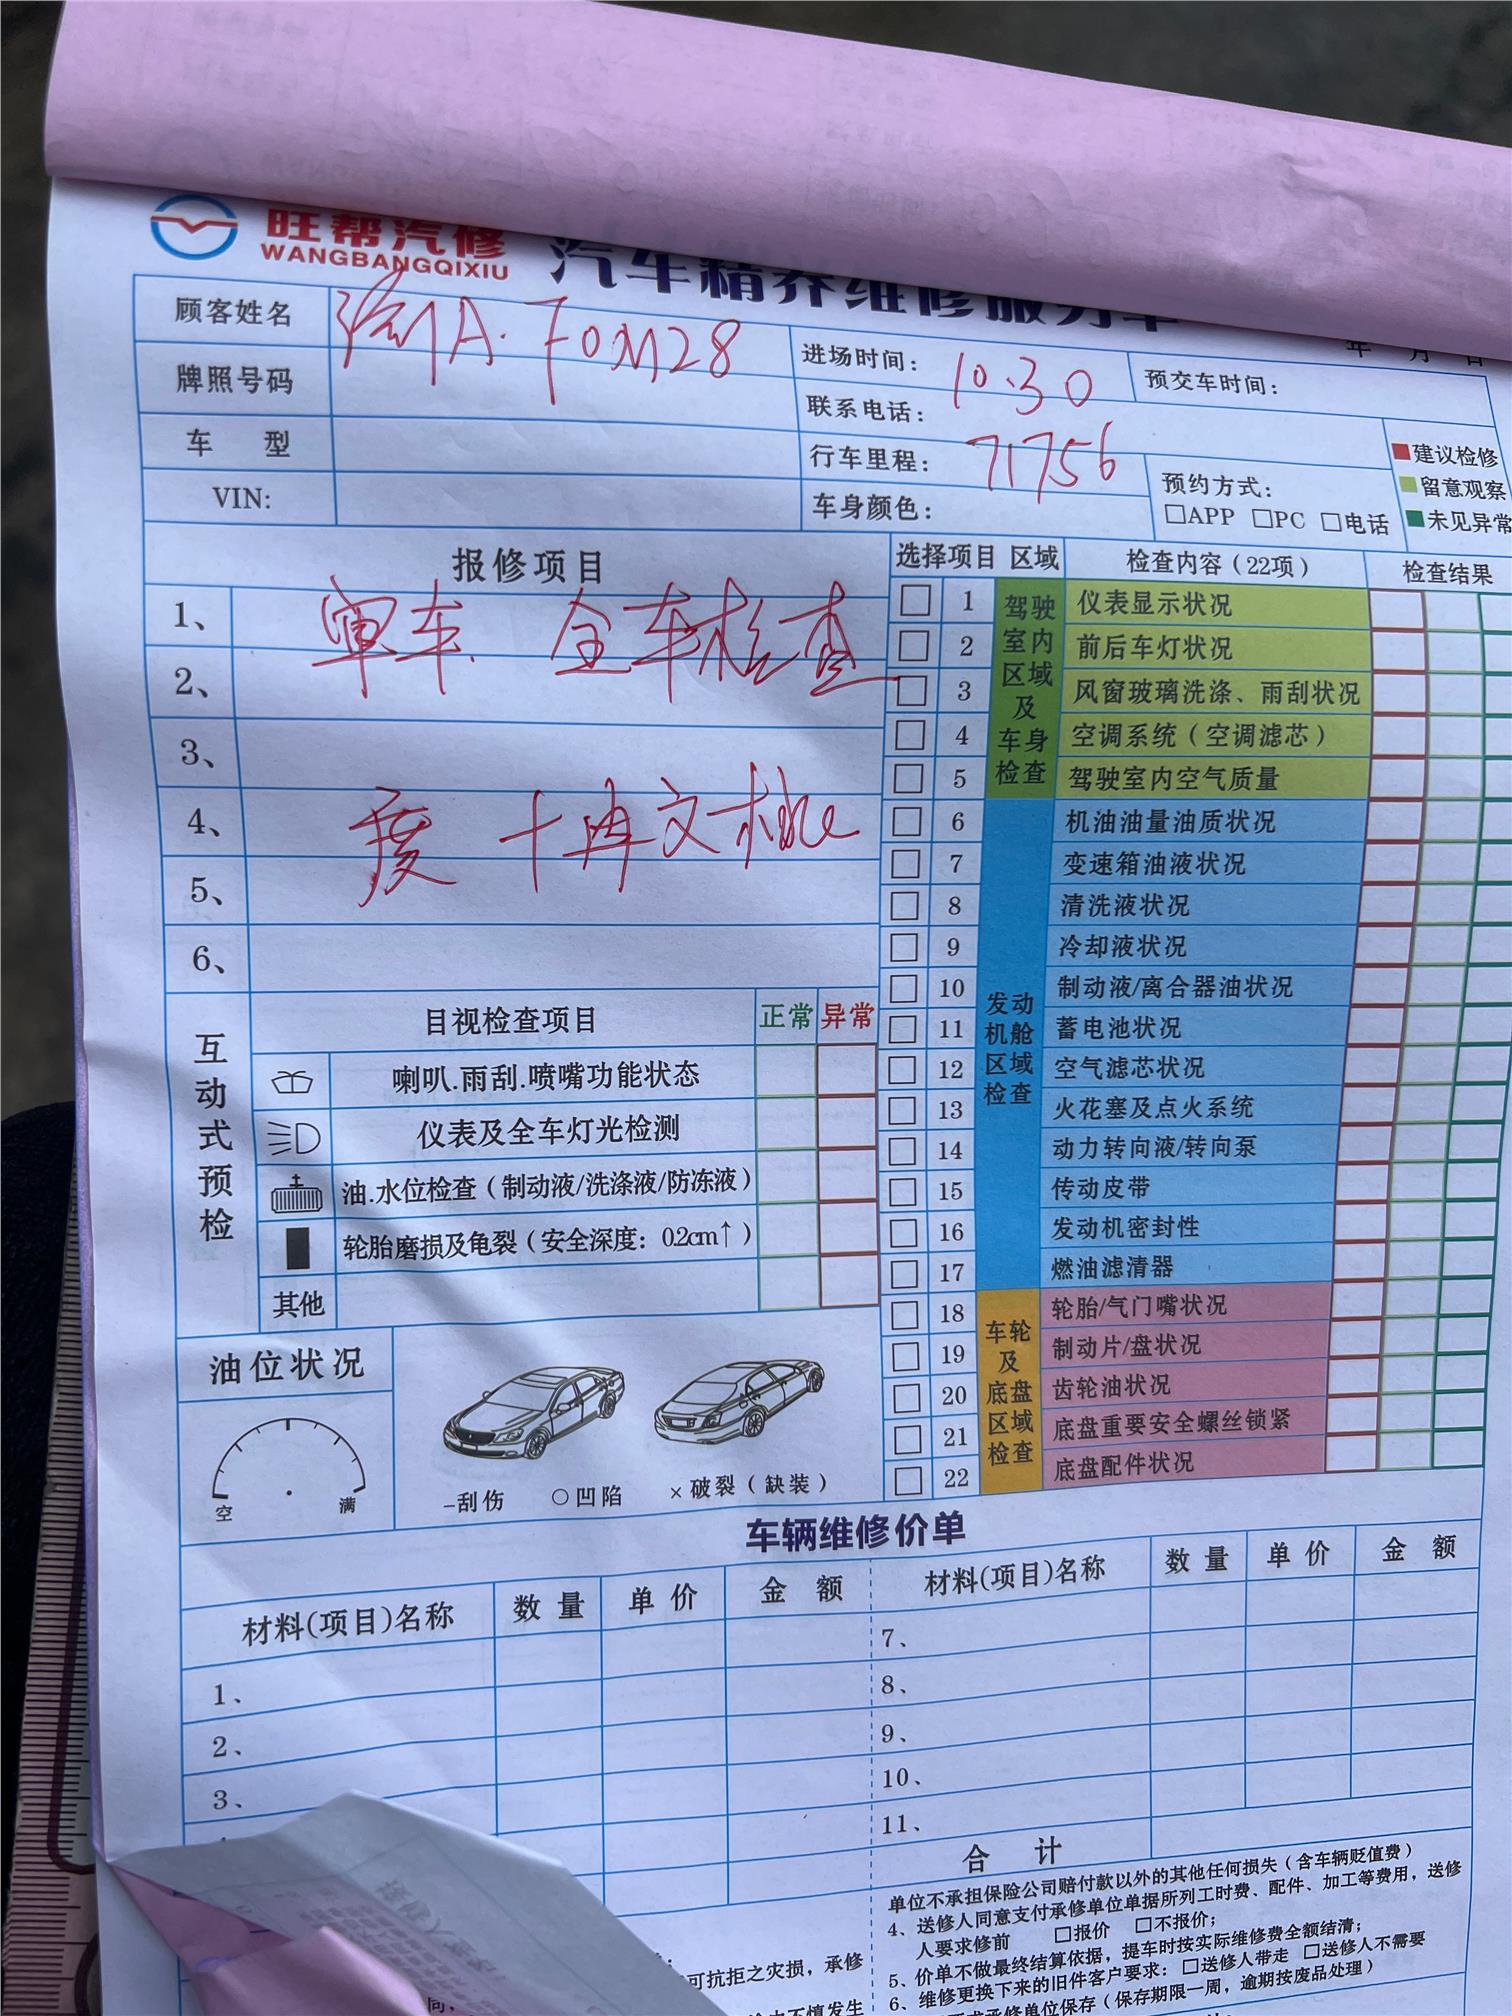 旺帮汽修
WANGBANGQIXIU
汽车精养维修服务单
年 月 日
顾客姓名
A·F0M28
进场时间: 10:30
预交车时间:
牌照号码
联系电话:
车 型
行车里程: 71756
VIN:
车身颜色:
预约方式:
□APP □PC □电话
建议检修
留意观察
未见异常
报修项目
1、
审车 全车检查
2、
3、
4、
5、
6、
选择项目 区域 检查内容(22项) 检查结果
驾驶室内区域及车身检查
1 仪表显示状况
2 前后车灯状况
3 风窗玻璃洗涤、雨刮状况
4 空调系统(空调滤芯)
5 驾驶室内空气质量
发动机舱区域检查
6 机油油量油质状况
7 变速箱油液状况
8 清洗液状况
9 冷却液状况
10 制动液/离合器油状况
11 蓄电池状况
12 空气滤芯状况
13 火花塞及点火系统
14 动力转向液/转向泵
15 传动皮带
16 发动机密封性
17 燃油滤清器
车轮及底盘区域检查
18 轮胎/气门嘴状况
19 制动片/盘状况
20 齿轮油状况
21 底盘重要安全螺丝锁紧
22 底盘配件状况
互动式预检
目视检查项目 正常 异常
喇叭.雨刮.喷嘴功能状态
仪表及全车灯光检测
油.水位检查(制动液/洗涤液/防冻液)
轮胎磨损及龟裂(安全深度: 0.2cm↑)
其他
油位状况
空 满
-刮伤 ○凹陷 ×破裂(缺装)
车辆维修价单
材料(项目)名称 数 量 单 价 金 额 材料(项目)名称 数 量 单 价 金 额
1、
2、
3、
7、
8、
9、
10、
11、
合 计
单位不承担保险公司赔付款以外的其他任何损失(含车辆贬值费)
4、送修人同意支付承修单位单据所列工时费、配件、加工等费用，送修
人要求修前 □报价 □不报价;
5、价单不做最终结算依据，提车时按实际维修费全额结清;
6、维修更换下来的旧件客户要求: □送修人带走 □送修人不需要
承修单位保存(保存期限一周，逾期按废品处理)
可抗拒之灾损，承修
不慎发生